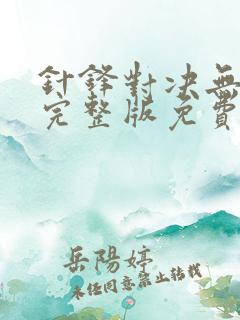 針鋒對決無
完整版免費
岳陽婷
未任同意禁止轉載